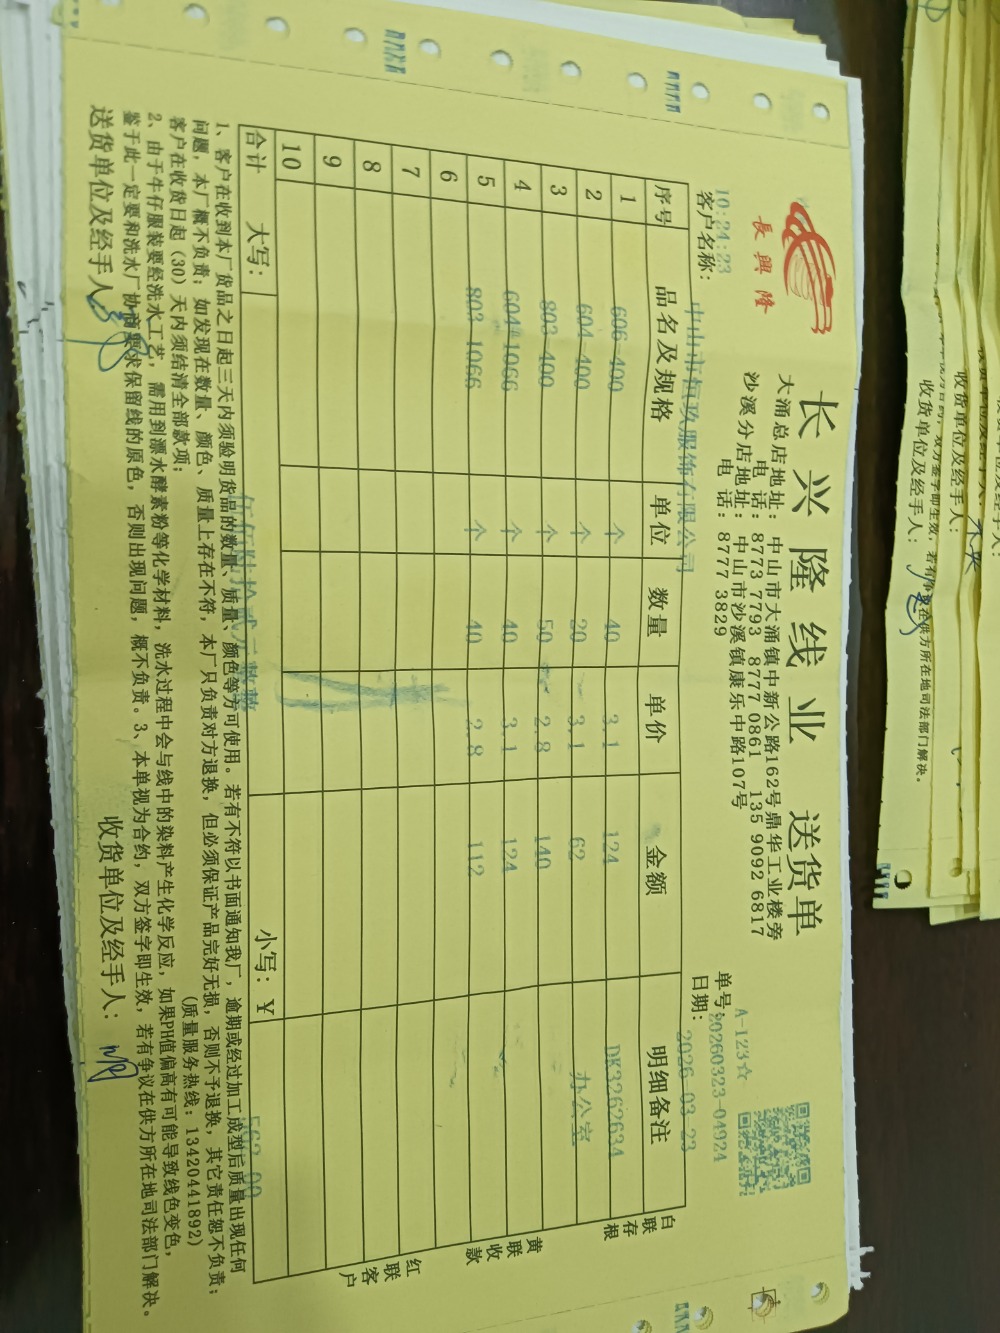 長興隆
长兴隆线业 送货单
大涌总店地址：中山市大涌镇中新公路162号鼎华工业楼旁
电 话：8773 7793 8777 0861 135 9092 6817
沙溪分店地址：中山市沙溪镇康乐中路107号
电 话：8777 3829
A-123☆
单号：20260323-0492A
日期：2026-03-23
10:24:23
客户名称：中山市 玖服饰有限公司
序号 品名及规格 单位 数量 单价 金额 明细备注
1 606-400 个 40 3.1 124 DK3262634
2 604-400 个 20 3.1 62 办公室
3 803-400 个 50 2.8 140
4 604-1066 个 40 3.1 124
5 803-1066 个 40 2.8 112
6
7
8
9
10
合计 大写： 小写：¥ 562.00
白联存根
黄联收款
红联客户
1、客户在收到本厂货品之日起三天内须验明货品的数量、质量、颜色等方可使用。若有不符以书面通知我厂，逾期或经过加工成型后质量出现任何
问题，本厂概不负责；如发现在数量、颜色、质量上存在不符，本厂只负责对方退换，但必须保证产品完好无损，否则不予退换，其它责任恕不负责；
客户在收货日起（30）天内须结清全部款项；
(质量服务热线：13420441892)
2、由于牛仔服装要经洗水工艺，需用到漂水酵素粉等化学材料，洗水过程中会与线中的染料产生化学反应，如果PH值偏高有可能导致线色变色，
鉴于此一定要和洗水厂协商要求保留线的原色，否则出现问题，概不负责。3、本单视为合约，双方签字即生效，若有争议在供方所在地司法部门解决。
送货单位及经手人： 收货单位及经手人：
双方签字即生效，若有争议在供方所在地司法部门解决。
收货单位及经手人：
收货单位及经手人：